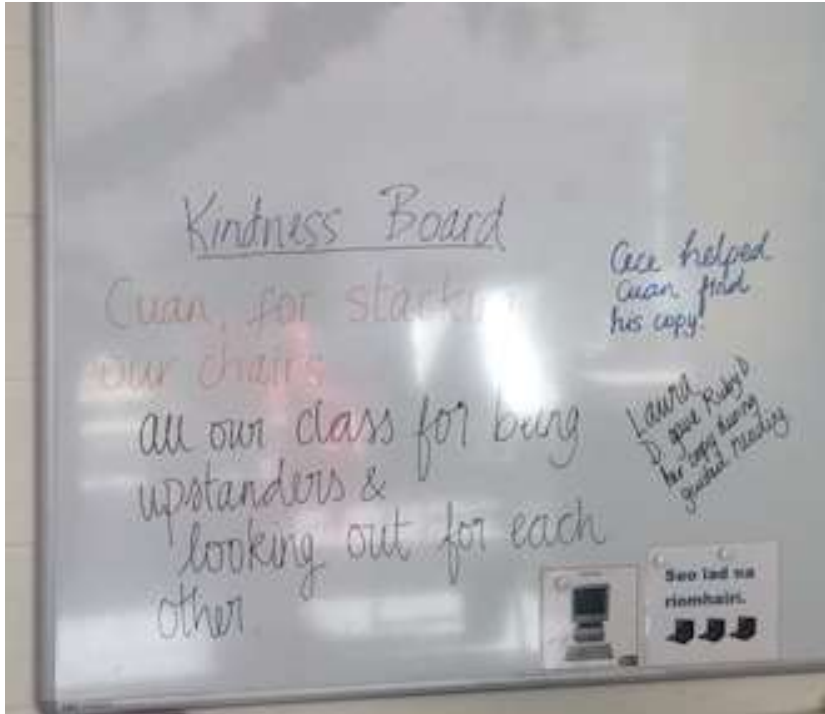 Kindness Board
Cuan, for stacking
our chairs
all our class for being
upstanders &
looking out for each
other
helped
Cuan find
his copy!
Laura
D gave Ruby D
her copy during
guided reading
Seo iad na
ríomhairí.